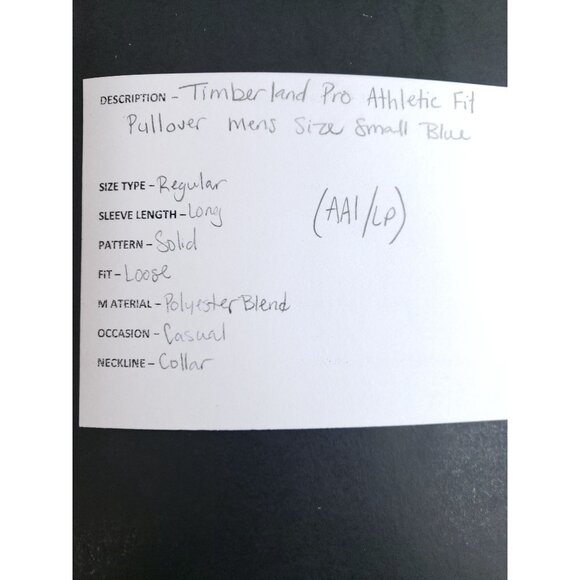 DESCRIPTION - Timberland Pro Athletic Fit
Pullover Mens Size Small Blue
SIZE TYPE - Regular
SLEEVE LENGTH - Long
(AA1/LP)
PATTERN - Solid
FIT - Loose
MATERIAL - Polyester Blend
OCCASION - Casual
NECKLINE - Collar